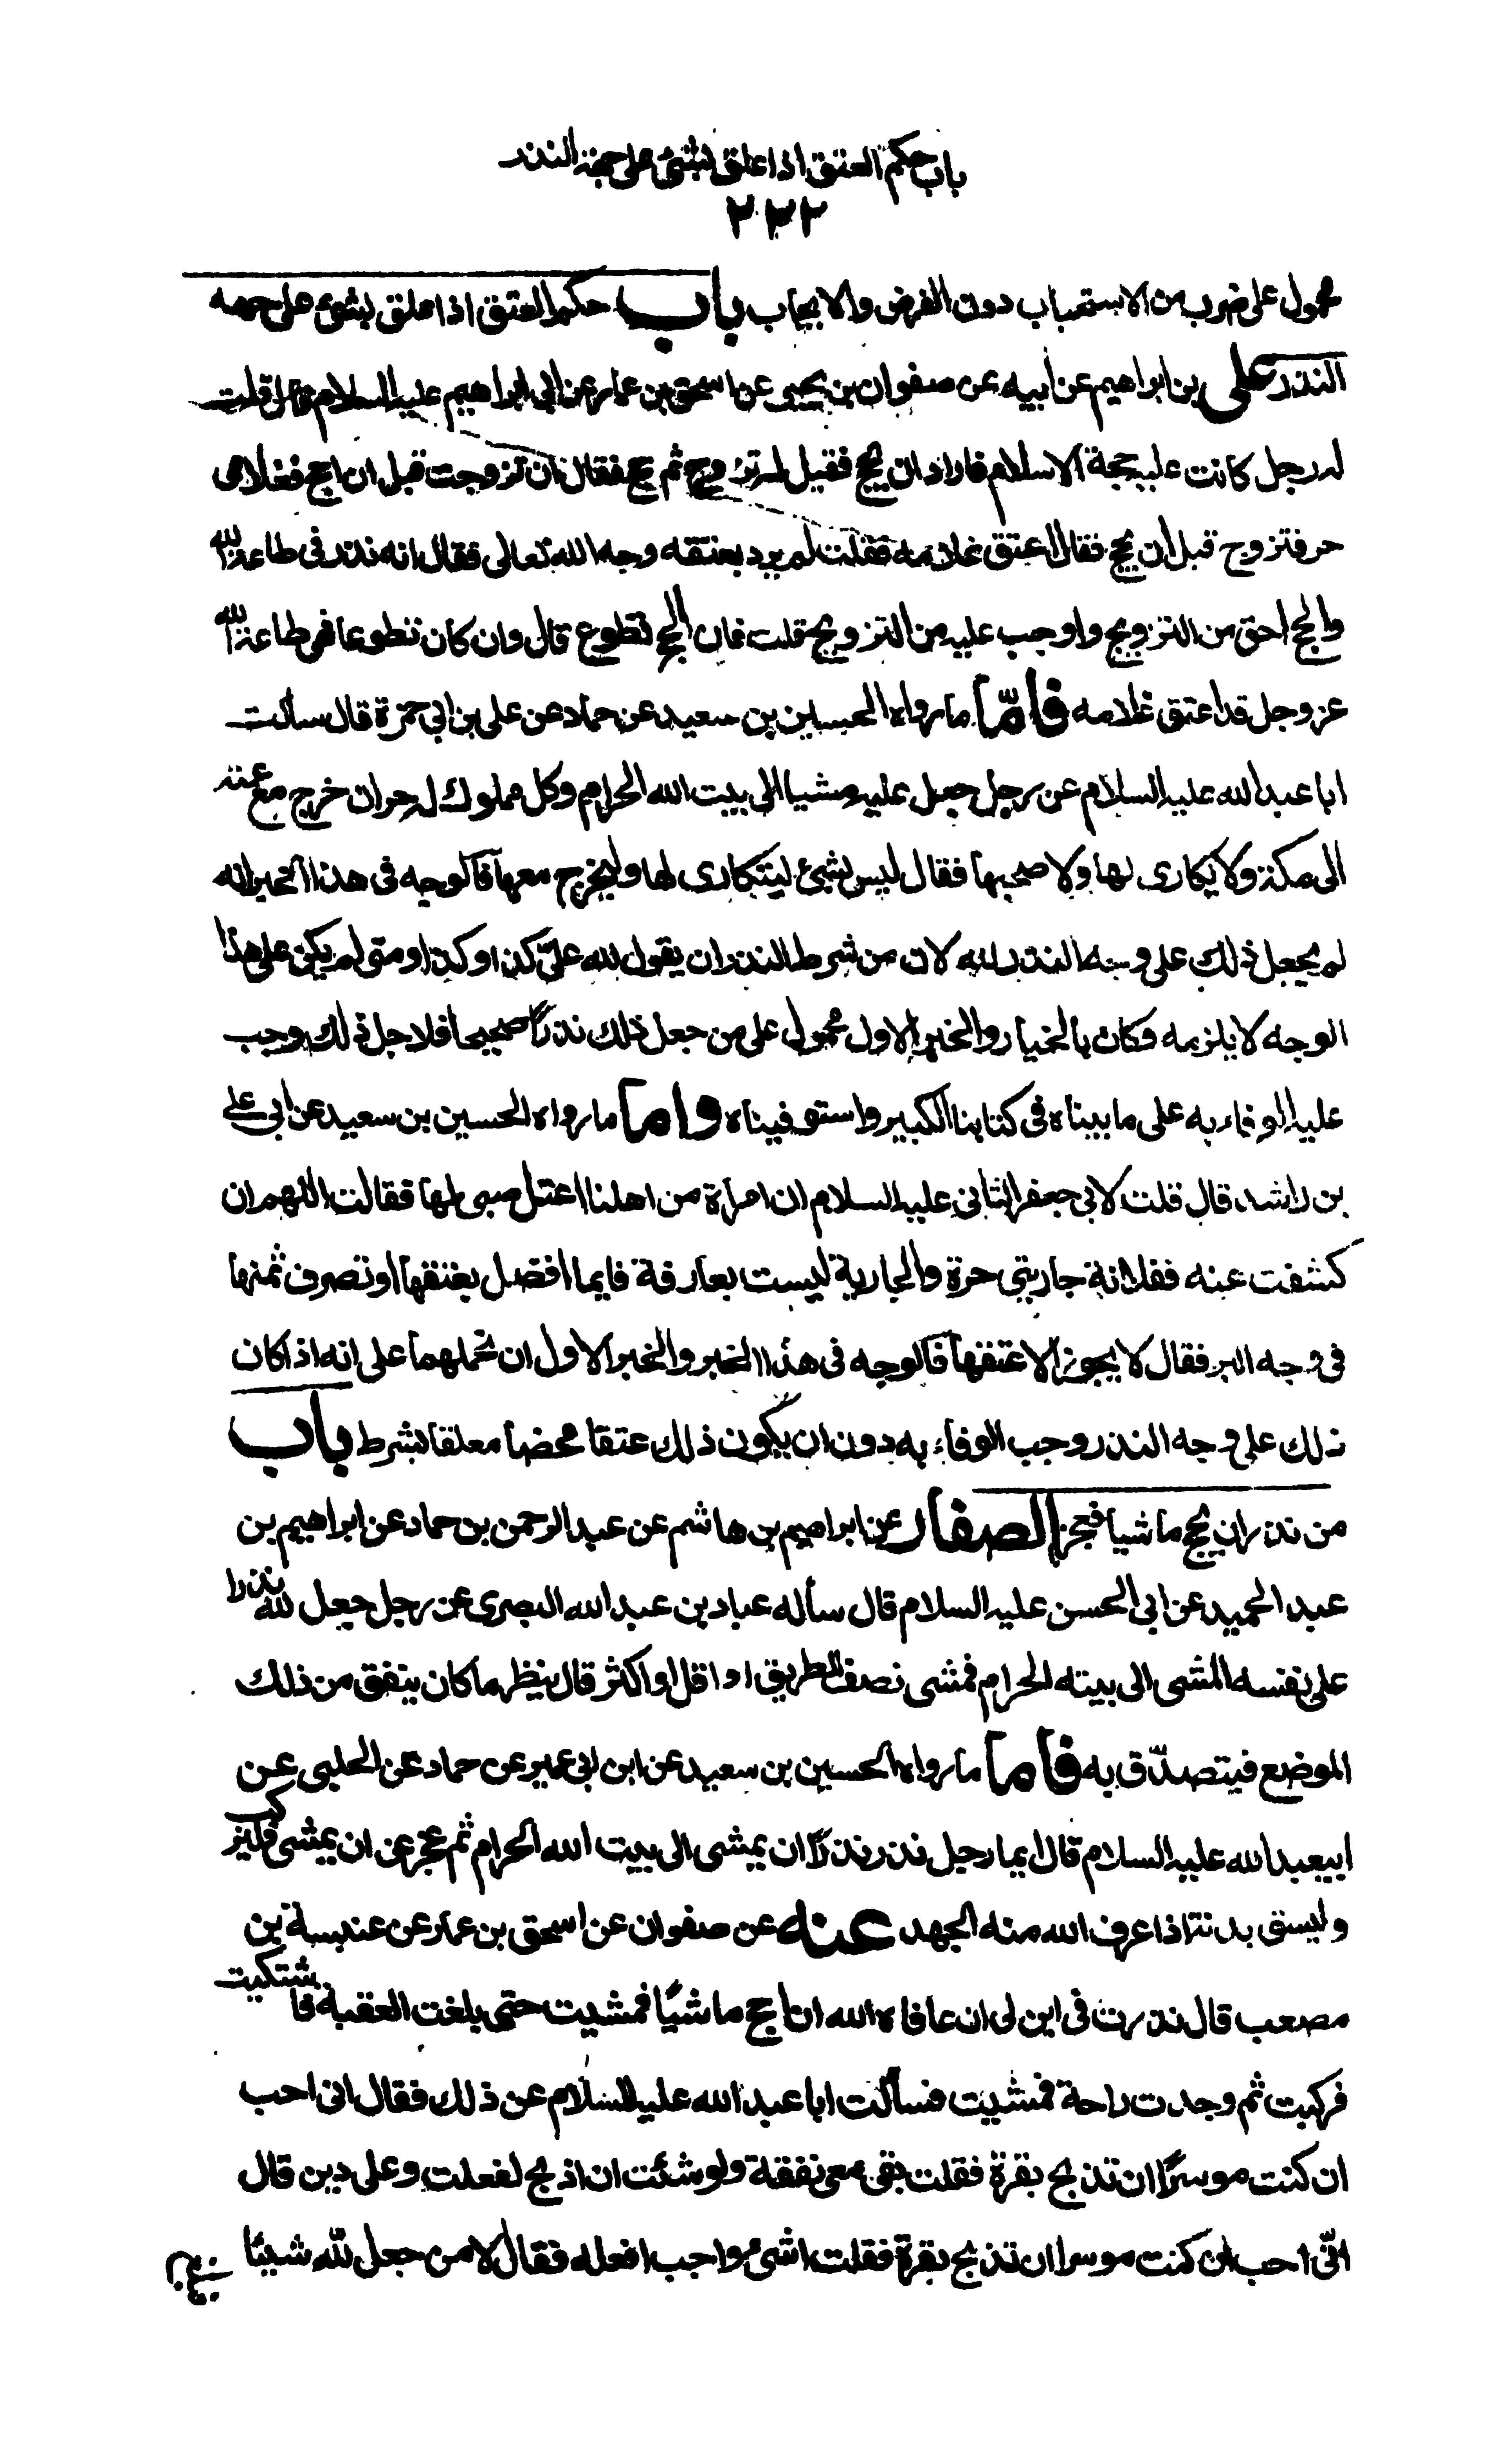 باب حكم العتق اذا علق بشئ على جهة النذر
٢٣٢
محمول على ضرب من الاستحباب دون الفرض والايجاب باب حكم العتق اذا علق بشئ على جهه
النذر على بن ابراهيم عن أبيه عن صفوان بن يحيى عن اسحق بن عمار عن ابى ابراهيم عليه السلام قال قلت
له رجل كانت عليه حجة الاسلام فاراد ان يحج فقيل له تزوج ثم حج فقال ان تزوجت قبل ان احج فغلامى
حر فتزوج قبل أن يحج فقال اعتق غلامه فقلت لم يرد بعتقه وجه الله تعالى فقال انه نذر فى طاعة الله
والحج احق من التزويج واوجب عليه من التزويج قلت فان الحج تطوع قال وان كان تطوعا فهى طاعة لله
عز وجل قد اعتق غلامه فامّا ما رواه الحسين بن سعيد عن حماد عن على بن ابى حمزة قال سألت
ابا عبد الله عليه السلام عن رجل جعل عليه مشيا الى بيت الله الحرام وكل مملوك له حر ان خرج مع عمته
الى مكة ولا يكارى لها ولا صحبها فقال ليس بشئ ليتكارى لها وليخرج معها فالوجه فى هذا الخبر انه
لم يجعل ذلك على وجه النذر لله لان من شرط النذر ان يقول لله علىّ كذا وكذا ومتى لم يكن على هذا
الوجه لا يلزمه فكان بالخيار والخبر الاول محمول على من جعل ذلك نذراً صحيحا فلاجل ذلك وجب
عليه الوفاء به على ما بيناه فى كتابنا الكبير واستوفيناه واما ما رواه الحسين بن سعيد عن ابى على
بن راشد قال قلت لابى جعفر الثانى عليه السلام ان امرأة من اهلنا اعتل صبى لها فقالت اللهم ان
كشفت عنه ففلانة جاريتى حرة والجارية ليست بعارفة فايما افضل بعتقها او تصرف ثمنها
فى وجه البر فقال لا يجوز الا عتقها فالوجه فى هذا الخبر والخبر الاول ان نحملهما على انه اذا كان
ذلك على وجه النذر وجب الوفاء به دون ان يكون ذلك عتقا محضا معلقا بشرط باب
من نذر ان يحج ماشيا فعجز الصفار عن ابراهيم بن هاشم عن عبد الرحمن بن حماد عن ابراهيم بن
عبد الحميد عن ابى الحسن عليه السلام قال سأله عباد بن عبد الله البصرى عن رجل جعل لله نذرا
على نفسه المشى الى بيته الحرام فمشى نصف الطريق او اقل او اكثر قال ينظر ما كان ينفق من ذلك
الموضع فيتصدّق به فاما ما رواه الحسين بن سعيد عن ابن ابى عمير عن حماد عن الحلبى عن
ابيعبد الله عليه السلام قال ايما رجل نذر نذراً ان يمشى الى بيت الله الحرام ثم عجز عن ان يمشى فليركب
وليسق بدنة اذا عرف الله منه الجهد عنه عن صفوان عن اسحق بن عمار عن عنبسة بن
مصعب قال نذرت فى ابن لى ان عافاه الله ان احج ماشيًا فمشيت حتى بلغت العقبة فاشتكيت
فركبت ثم وجدت راحة فمشيت فسألت ابا عبد الله عليه السلام عن ذلك فقال انى احب
ان كنت موسرًا ان تذبح بقرة فقلت بقى معى نفقة ولو شئت ان اذبح لفعلت وعلى دين قال
انّى احب ان كنت موسرا ان تذبح بقرة فقلت اشئ واجب افعله فقال لا من جعل للّه شيئا